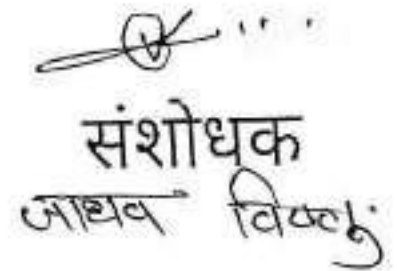 संशोधक
जाधव विष्णु